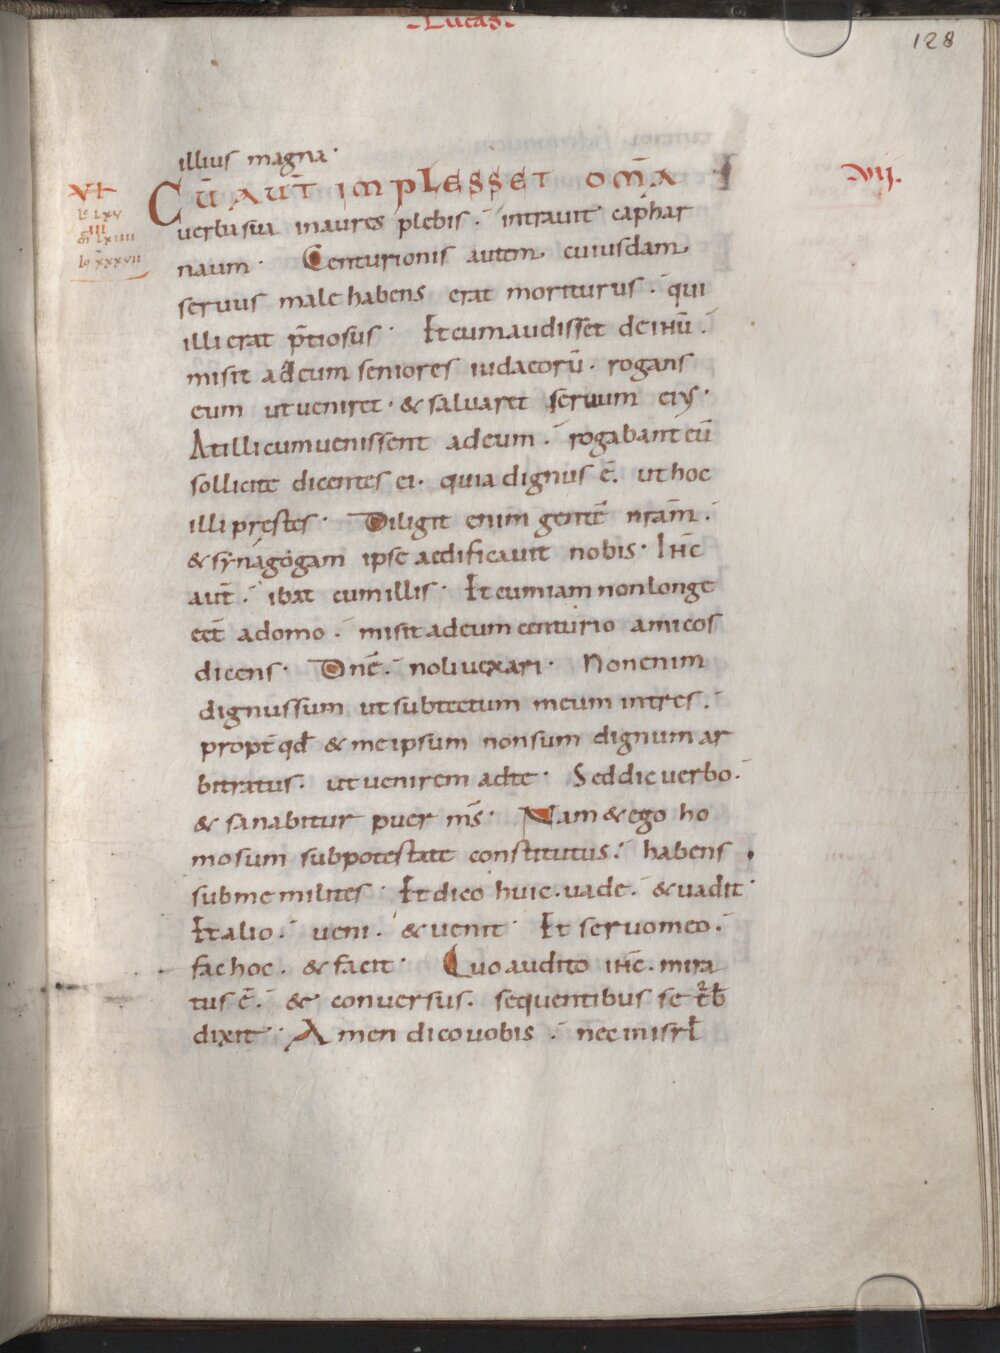 -Lucas-
128
illius magna·
VI
CŪ AUT̄ IMPLESSET OM̄A
VII.
lc LXV
verba sua in aures plebis. intravit caphar
III
m̄ LXIIII
io XXXVII
naum· Centurionis autem cuiusdam
servus male habens erat moriturus. qui
illi erat p̄tiosus· Et cum audisset de ihū.
misit ad eum seniores iudaeorū. rogans
eum ut veniret· & salvaret servum eius·
At illi cum venissent ad eum. rogabant eū
sollicite dicentes ei. quia dignus ē. ut hoc
illi prestes· Diligit enim gentē nr̄am.
& synagogam ipse aedificavit nobis· Ihc̄
aut̄. ibat cum illis· Et cum iam non longe
eēt a domo. misit ad eum centurio amicos
dicens· Dn̄e. noli vexari· Non enim
dignus sum ut sub tectum meum intres.
propt̄ qd̄ & me ipsum non sum dignum ar
bitratus. ut venirem ad te· Sed dic verbo.
& sanabitur puer m̄s· Nam & ego ho
mo sum sub potestate constitutus. habens
sub me milites· Et dico huic. vade. & vadit·
Et alio. veni. & venit· Et servo meo.
fac hoc. & facit· Quo audito ihc̄. mira
tus ē. & conversus. sequentibus se t̄b̄
dixit· Amen dico vobis. nec in isrl̄